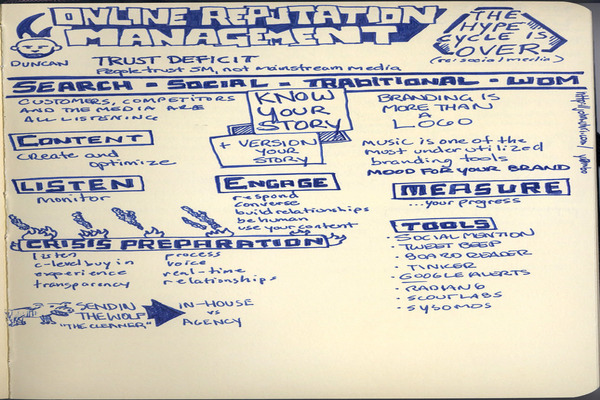 ONLINE REPUTATION
MANAGEMENT
THE
HYPE
CYCLE IS
OVER
(re: social media)
DUNCAN
TRUST DEFICIT
People trust SM, not mainstream media
SEARCH - SOCIAL - TRADITIONAL - WOM
CUSTOMERS, COMPETITORS
AND THE MEDIA ARE
ALL LISTENING
KNOW
YOUR
STORY
+ VERSION
YOUR
STORY
BRANDING IS
MORE THAN
A
LOGO
Music is one of the
most under utilized
branding tools
MOOD FOR YOUR BRAND
CONTENT
create and
optimize
LISTEN
monitor
ENGAGE
respond
converse
build relationships
be human
use your content
MEASURE
...your progress
CRISIS PREPARATION
listen
c-level buy in
experience
transparency
process
voice
real-time
relationships
TOOLS
- SOCIAL MENTION
- TWEET BEEP
- BOARD READER
- TINKER
- GOOGLE ALERTS
- RADIAN 6
- SCOUTLABS
- SYSOMOS
SEND IN
THE WOLF
"THE CLEANER"
IN-HOUSE
vs
AGENCY